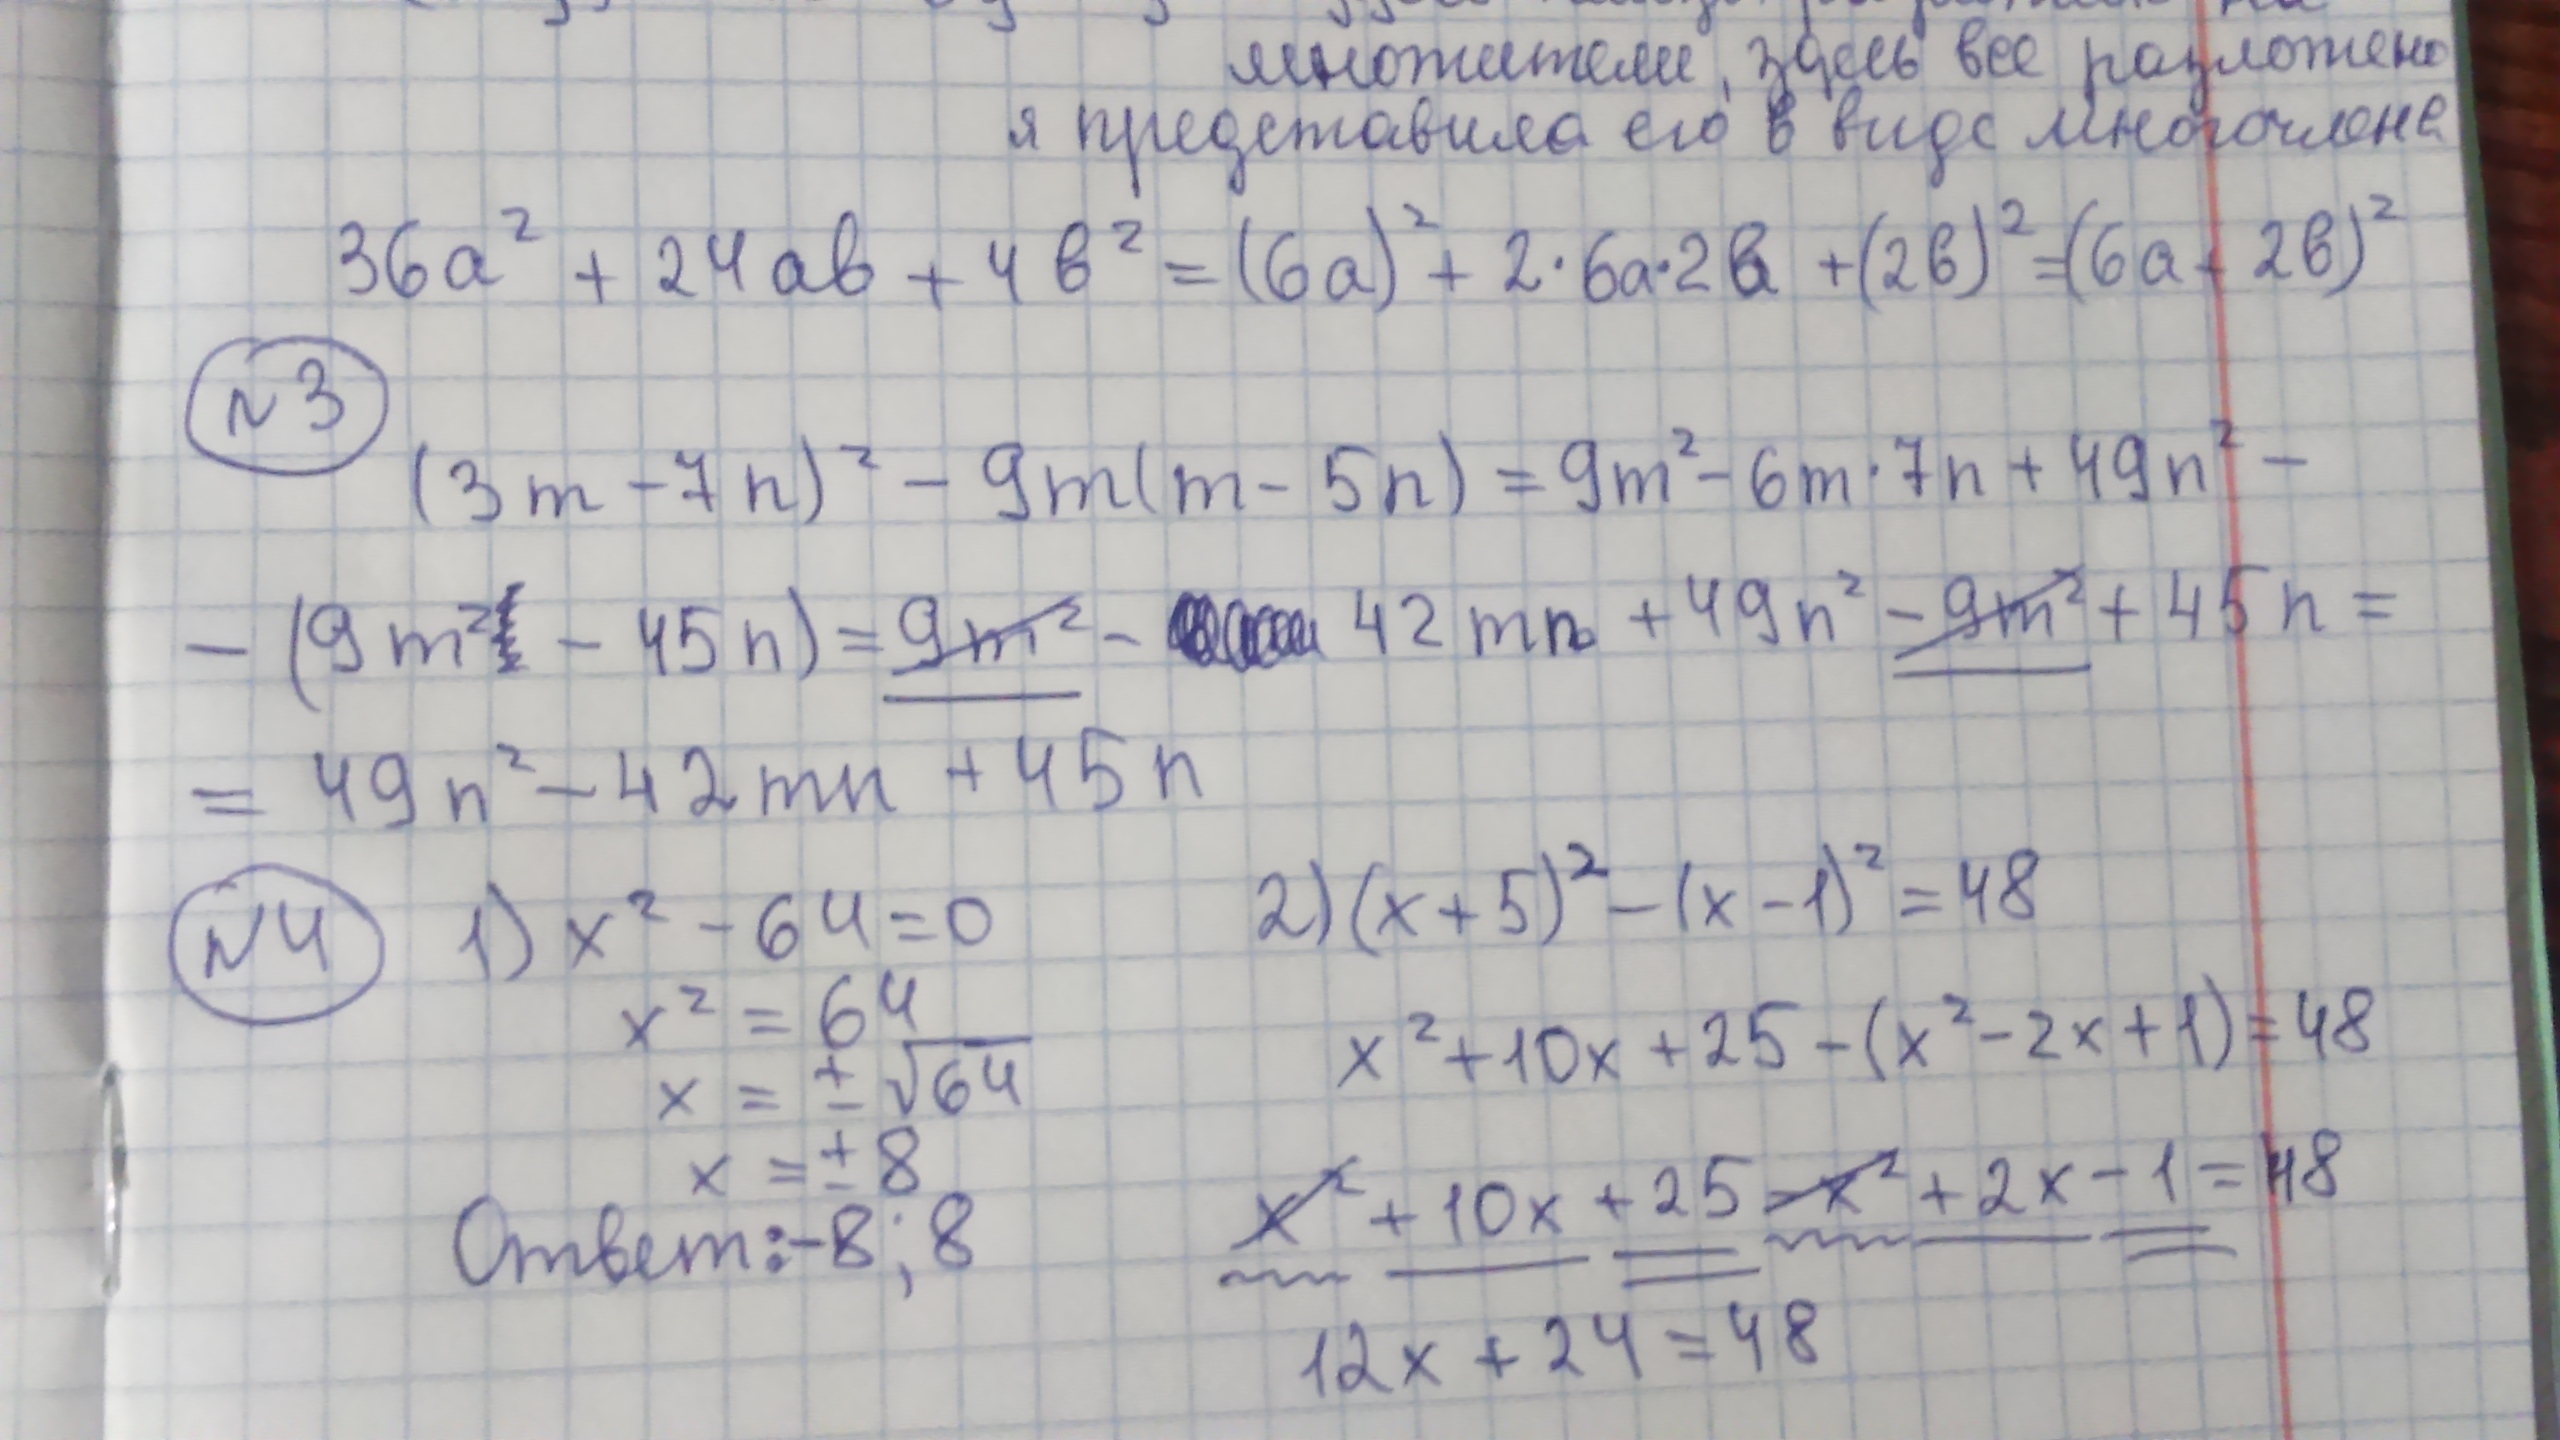 множители, здесь все разложено
я представила его в виде многочлена
36a² + 24ab + 4b² = (6a)² + 2·6a·2b + (2b)² = (6a + 2b)²
№3
(3m - 7n)² - 9m(m - 5n) = 9m² - 6m·7n + 49n² -
- (9m² - 45n) = 9m² - 42mn + 49n² - 9m² + 45n =
= 49n² - 42mn + 45n
№4 1) x² - 64 = 0
x² = 64
x = ± √64
x = ± 8
Ответ: -8; 8
2) (x + 5)² - (x - 1)² = 48
x² + 10x + 25 - (x² - 2x + 1) = 48
x² + 10x + 25 - x² + 2x - 1 = 48
12x + 24 = 48